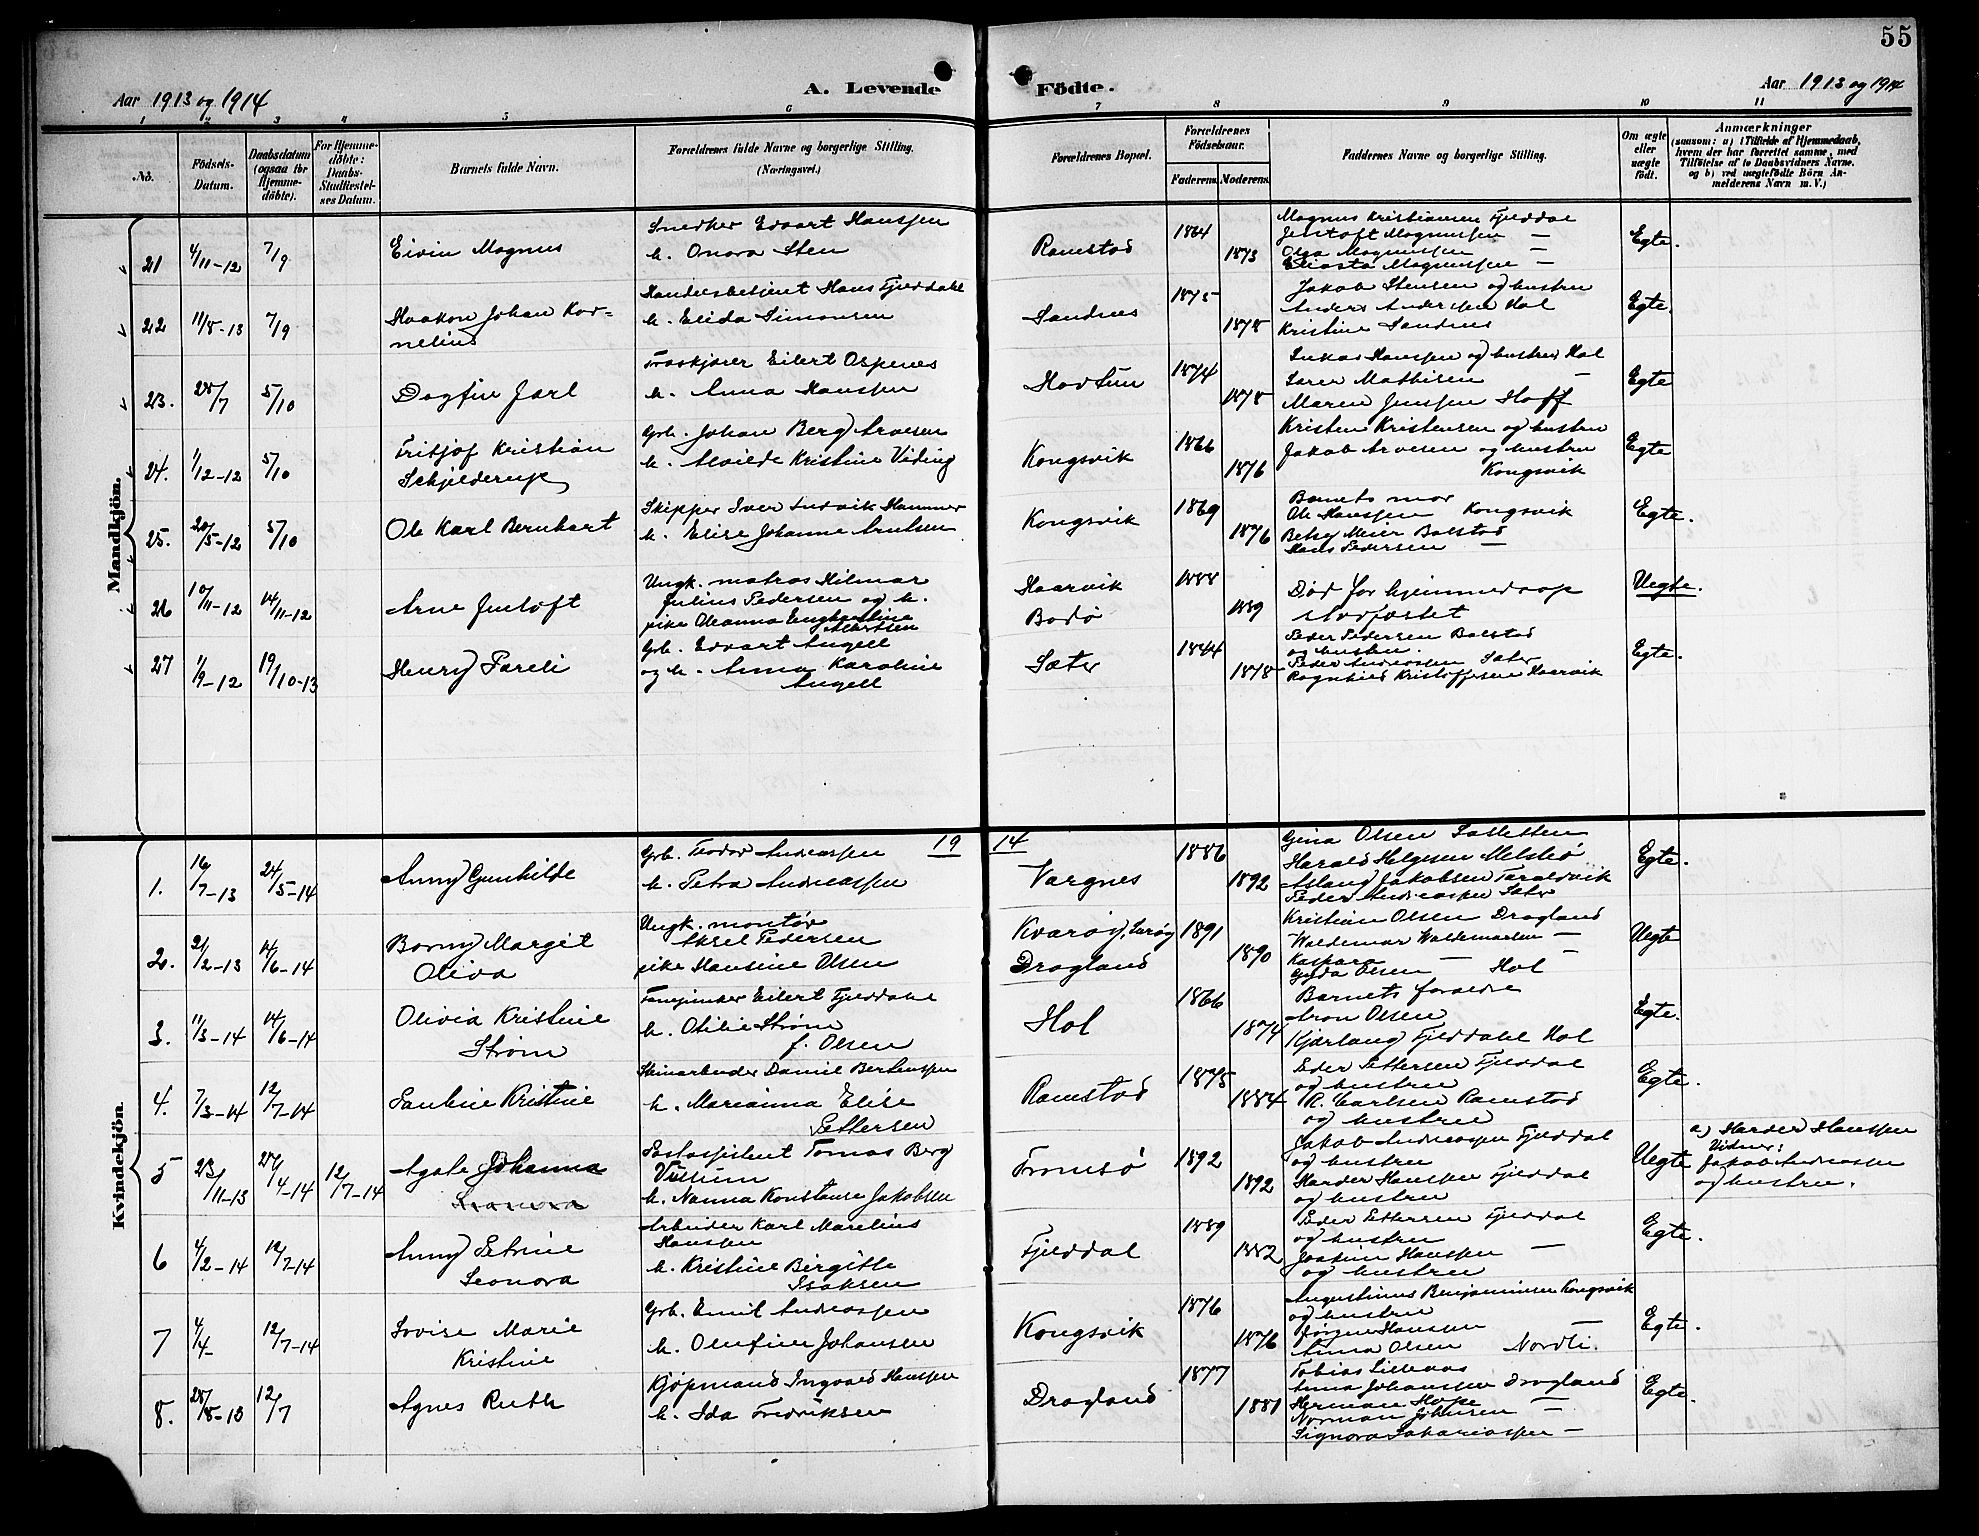 55
Aar 1913 og 1914
A. Levende Födte.
Aar 1913 og 1914
1 2 3 4 5 6 7 8 9 10 11
No.
Födsels-Datum.
Daabsdatum (ogsaa for Hjemmedöbte).
For Hjemmedöbte: Daabs-Stadfæstelses Datum.
Barnets fulde Navn.
Forældrenes fulde Navne og borgerlige Stilling. (Næringsvei.)
Forældrenes Bopæl.
Forældrenes Födselsaar.
Faderens. Moderens.
Faddernes Navne og borgerlige Stilling.
Om ægte eller uægte födt.
Anmærkninger (saasom: a) i Tilfælde af Hjemmedaab, hvem der har forrettet samme, med Tilföielse af to Daabsvidners Navne, og b) ved uægtefödte Börn Anmelderens Navn m. V.)
Mandkjön.
21 4/11-12 7/9 Eivin Magnus
Snedker Edvart Hanssen
h. Onora Sten
Ramstad 1864 1873
Magnus Kristiansen Fjelddal
Jentoft Magnussen —
Olga Magnussen
Eliasta Magnussen —
Egte.
22 11/8-13 7/9 Haakon Johan Kornelius
Handelsbetjent Hans Fjelddahl
h. Elida Simonsen
Sandnes 1875 1878
Jakob Stensen og hustru
Anders Anderssen Hol
Kristine Sandnes
Egte.
23. 28/7 5/10 Dagfin Jarl
Eilert Ospenes
h. Anna Hanssen
1874 1878
Lukas Hanssen og hustru Hol
Søren Mathisen —
Maren Jenssen Hoff
Egte
24. 1/12-12 5/10 Fritjof Kristian Schjelderup
Grb. Johan Berg Arvesen
h. Alvilde Kristine Viding
Kongsvik 1866 1876
Kristen Kristensen og hustru
Jakob Arvesen og hustru
Kongsvik
Egte
25. 20/5-12 5/10 Ole Karl Bernhart
Skipper Iver Ludvik Hammer
h. Elise Johanne Arntsen
Kongsvik 1869 1876
Barnets mor
Ole Hanssen Kongsvik
Betsy Meier Bolstad
Hans Pedersen —
Egte.
26 10/11-12 14/11-12 Arne Jentoft
Ungk. matros Hilmar
Julius Pedersen og h.
pike Oleanna Engharline
Albertsen
Haarvik
Bodø
1888 1889
Død før hjemmedaap
stadfæstet
Uegte.
27 1/9-12 19/10-13 Henry Pareli
Grb. Edvart Angell
og h. Anna Karoline
Angell
Sæter 1844 1878
Peder Pedersen Bolstad
og hustru.
Peder Andreassen Sæter
Ragnhild Kristoffersen Haarvik
Egte.
1914
Kvindekjön.
1. 16/7-13 24/5-14 Anny Gunhilde
Grb. Teodor Andreassen
h. Petra Andreassen
Vargnes 1886 1892
Gina Olsen
Harald Helgesen Melsbø
Aslaug Jakobsen Taraldsvik
Peder Andreassen Sæter
Egte.
2. 21/2-13 14/6-14 Borny Margit
Oliva
Ungk. montør
Aksel Pedersen
pike Hansine Olsen
Kvarøy, Lurøy
Dragland
1891 1890
Kristian Olsen Dragland
Waldemar Waldemarsen —
Kaspara — —
Gyda Olsen Hol
Uegte
3. 11/3-14 14/6-14 Olivia Kristine
Strøm
Eilert Fjelddahl
h. Otilie Strøm
f. Olsen
Hol 1866 1874
Barnets forældre
Aron Olsen
Kjærlaug Fjelddahl Hol
Egte.
4. 7/3-14 12/7-14 Pauline Kristine
Stenarbeider Daniel Berthenssen
h. Marianna Elise
Pettersen
Ramstad 1875 1884
Peder Pettersen Fjelddal
og hustru
R. Carlsen Ramstad
og hustru
Egte.
5 23/11-13 27/4-14 12/7-14 Agate Johanna
Leonora
Postaspirent Tomas Berg
h. Nanna Konstanse Jakobsen
Tromsø 1892 1892
Jakob Andreassen Fjelddal
og hustru
Harder Hanssen Fjelddal
og hustru
Uegte
a) Harder Hanssen
Vidner:
Jakob Andreassen
og hustru.
6 4/2-14 12/7-14 Anny Petrine
Leonora
Arbeider Karl Marelius
Hanssen
h. Kristine Birgitte
Isaksen
Fjelddal 1889 1882
Peder Pettersen Fjelddal
og hustru
Joakim Hanssen —
og hustru
Egte.
7 4/4- 12/7-14 Lovise Marie
Kristine
Grb. Emil Andreassen
h. Olufine Johansen
Kongsvik 1876 1876
Augustinus Benjaminsen Kongsvik
og hustru
Jørgen Hanssen —
Anna Olsen Nordli.
Egte.
8. 28/8-13 12/7 Agnes Ruth
Kjøpmand Ingvald Hanssen
h. Ida Fredriksen
Dragland 1877 1881
Tobias Lillevas
Anna Johanssen Dragland
Herman Hope —
Norman Johnsen —
Signora Sakariassen —
Egte.